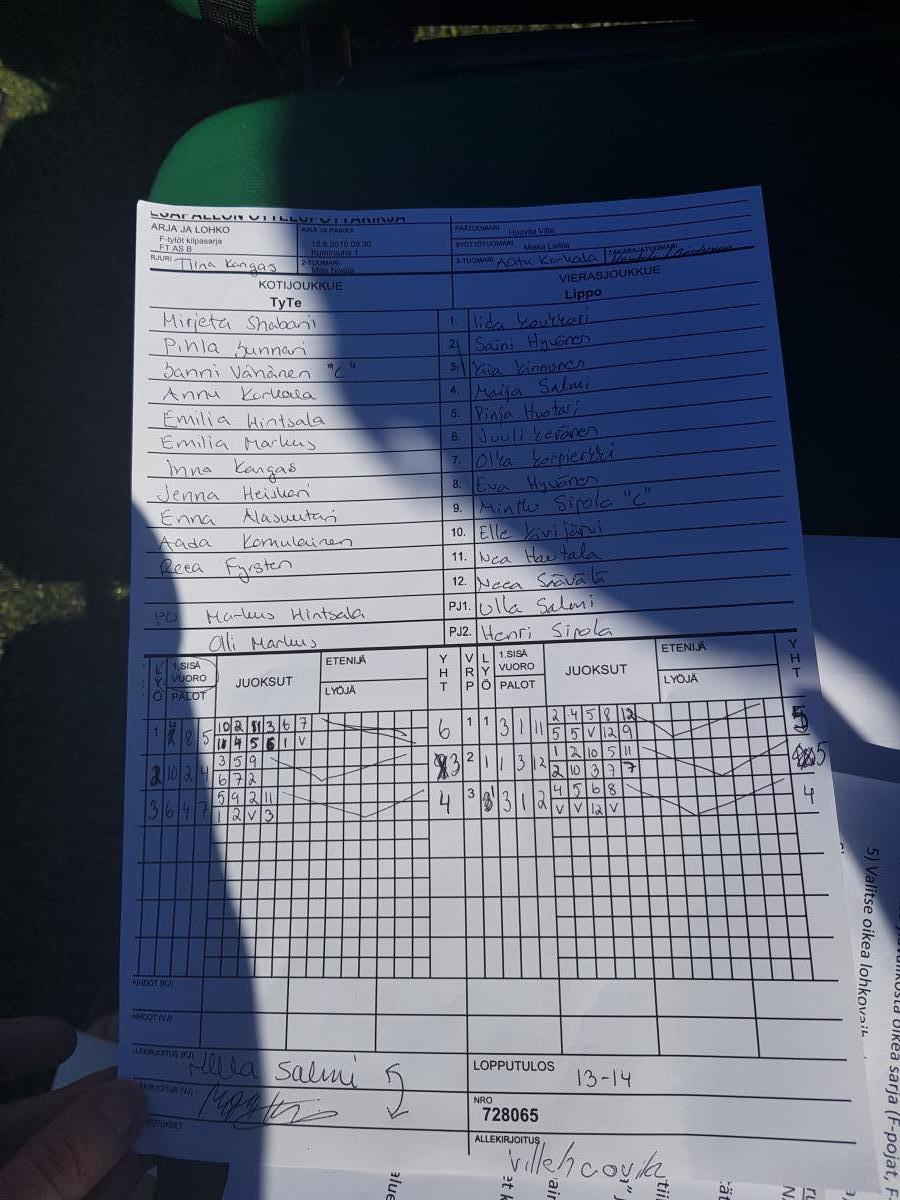 ESAPALLON OTTELUPÖYTÄKIRJA
ARJA JA LOHKO
F-tytöt kilpasarja
FT AS B
AIKA JA PAIKKA
15.6.2019 09:30
Kumirouhe 1
PÄÄTUOMARI Huovila Ville
SYÖTTÖTUOMARI Miska Laitila
RJURI Tiina Kangas
2-TUOMARI
Milla Nivala
3-TUOMARI Aatu Korkala
TAKARAJATUOMARI
KOTIJOUKKUE
TyTe
VIERASJOUKKUE
Lippo
Mirjeta Shabani 1. Iida
Pihla Sunnari 2. Saini Hyvönen
Sanni Vähänen "C" 3. Kiia Kinnunen
Annu Korkala 4. Maija Salmi
Emilia Hintsala 5. Pinja Huotari
Emilia Markus 6. Juuli Kevänen
Inna Kangas 7. Olka
Jenna Heiskari 8. Eva Hyvönen
Enna Alasuutari 9. Minttu Sipola "C"
Aada Komulainen 10. Elle Kivijärvi
Reea Fyrsten 11. Nea Hautala
12. Neea Säävälä
PO Markus Hintsala PJ1. Ulla Salmi
Oli Markus PJ2. Henri Sipola
LYÖ 1.SISÄ VUORO PALOT JUOKSUT ETENIJÄ LYÖJÄ YHT VRP LYÖ 1.SISÄ VUORO PALOT JUOKSUT ETENIJÄ LYÖJÄ YHT
1 8 5 10 2 11 3 6 7 6 1 1 3 1 11 2 4 5 8 12 5
11 4 5 6 1 V 5 5 V 12 9
2 10 2 4 3 5 9 3 2 1 1 3 12 1 2 10 5 11 5
6 7 2 2 10 3 7 7
3 6 4 7 5 9 2 11 4 3 1 3 1 2 4 5 6 8 4
1 2 V 3 V V 12 V
AIHDOT (KJ)
AIHDOT (VJ)
LLEKIRJOITUS (KJ) Ulla Salmi
LOPPUTULOS 13-14
LEKIRJOITUS (VJ)
NRO
728065
AUTUKSET
ALLEKIRJOITUS
Ville Huovila
5) Valitse oikea lohkovaih
oikea sarja (F-pojat, F-